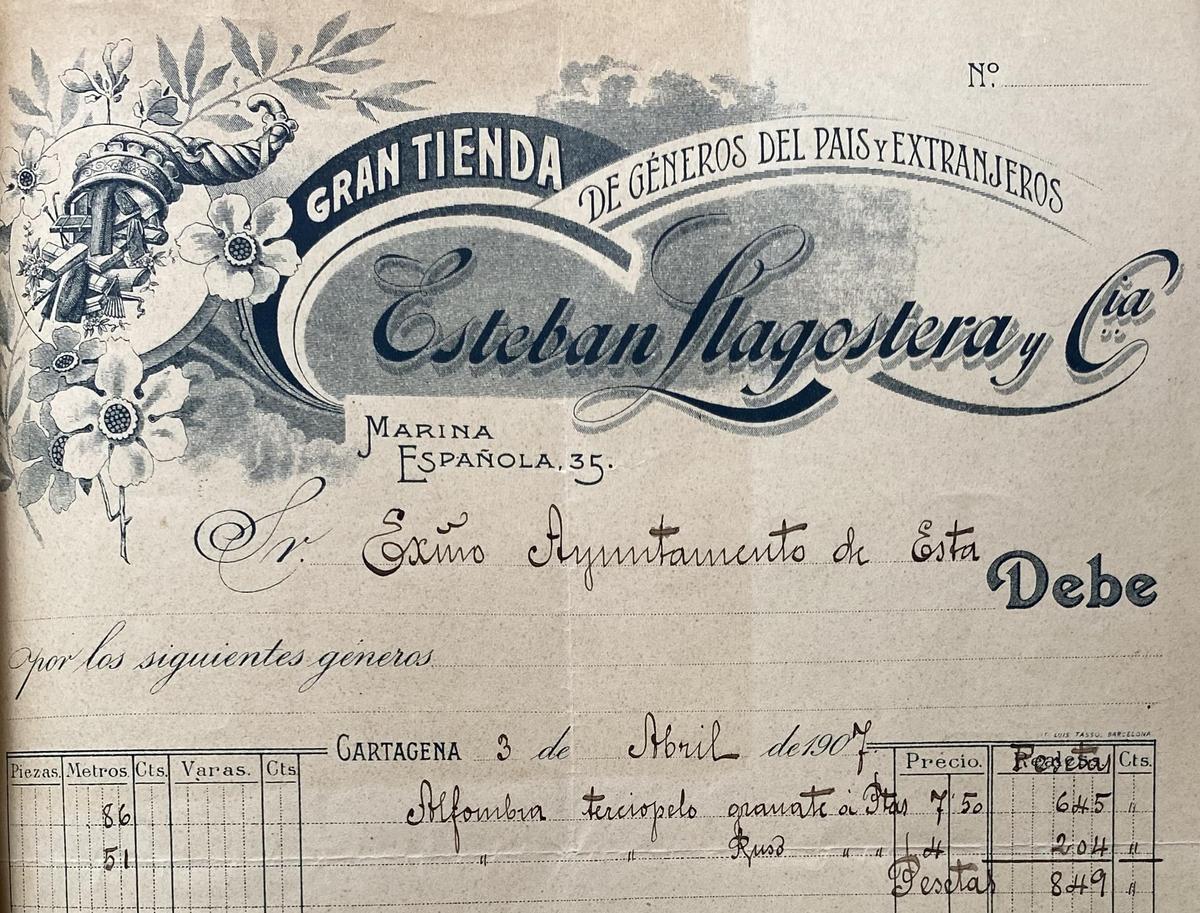 Nº
GRAN TIENDA DE GÉNEROS DEL PAIS Y EXTRANJEROS
Esteban Llagostera y Cia
MARINA
ESPAÑOLA, 35.
Sr. Exmo Ayuntamento de Esta
Debe
por los siguientes géneros
LUIS TASSO, BARCELONA
CARTAGENA 3 de Abril de 1907
Piezas. Metros. Cts. Varas. Cts. Precio. Pesetas Cts.
86 Alfombra terciopelo granate á Ptas 7 50 645 "
51 " " Ruso " " 4 204 "
Pesetas 849 "